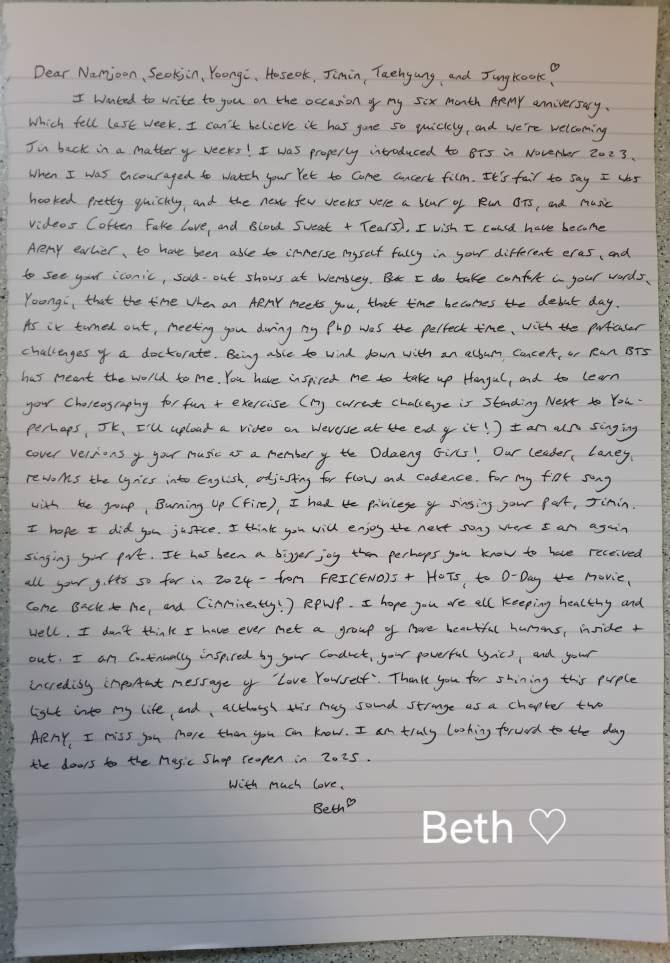 Dear Namjoon, Seokjin, Yoongi, Hoseok, Jimin, Taehyung, and Jungkook,♡
I wanted to write to you on the occasion of my six month ARMY anniversary,
which fell last week. I can't believe it has gone so quickly, and we're welcoming
Jin back in a matter of weeks! I was properly introduced to BTS in November 2023,
when I was encouraged to watch your Yet to Come concert film. It's fair to say I was
hooked pretty quickly, and the next few weeks were a blur of Run BTS, and music
videos (often Fake Love, and Blood Sweat + Tears). I wish I could have become
ARMY earlier, to have been able to immerse myself fully in your different eras, and
to see your iconic, sold-out shows at Wembley. But I do take comfort in your words,
Yoongi, that the time when an ARMY meets you, that time becomes the debut day.
As it turned out, meeting you during my PhD was the perfect time, with the particular
challenges of a doctorate. Being able to wind down with an album, concert, or Run BTS
has meant the world to me. You have inspired me to take up Hangul, and to learn
your choreography for fun + exercise (my current challenge is Standing Next to You -
perhaps, JK, I'll upload a video on Weverse at the end of it!) I am also singing
cover versions of your music as a member of the Ddaeng Girls! Our leader, Laney,
reworks the lyrics into English, adjusting for flow and cadence. For my first song
with the group, Burning Up (Fire), I had the privilege of singing your part, Jimin.
I hope I did you justice. I think you will enjoy the next song where I am again
singing your part. It has been a bigger joy than perhaps you know to have received
all your gifts so far in 2024 - from FRI(END)S + HOTS, to D-Day the Movie,
Come Back to Me, and (imminently!) RPWP. I hope you are all keeping healthy and
well. I don't think I have ever met a group of more beautiful humans, inside +
out. I am continually inspired by your conduct, your powerful lyrics, and your
incredibly important message of 'Love Yourself'. Thank you for shining this purple
light into my life, and, although this may sound strange as a chapter two
ARMY, I miss you more than you can know. I am truly looking forward to the day
the doors to the Magic Shop reopen in 2025.
With much love,
Beth♡
Beth ♡